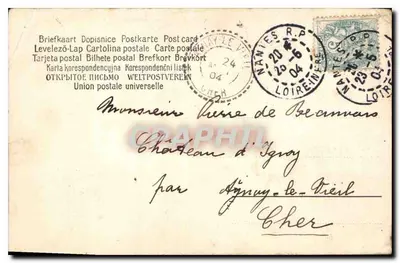 Briefkaart Dopisnice Postkarte Post card
Levelező-Lap Cartolina postale Carte postale
Tarjeta postal Bilhete postal Brefkort Brevkort
Karta korespondencyjna Korespondenční lístek
ОТКРЫТОЕ ПИСЬМО WELTPOSTVEREIN
Union postale universelle
24
04
CHER
NANTES R.P.
20
04
LOIRE-INFRE
NANTES R.P.
23
04
LOIRE
Monsieur Pierre de Beauvais
Château d'Ignoy
par Aynay-le-Vieil
Cher